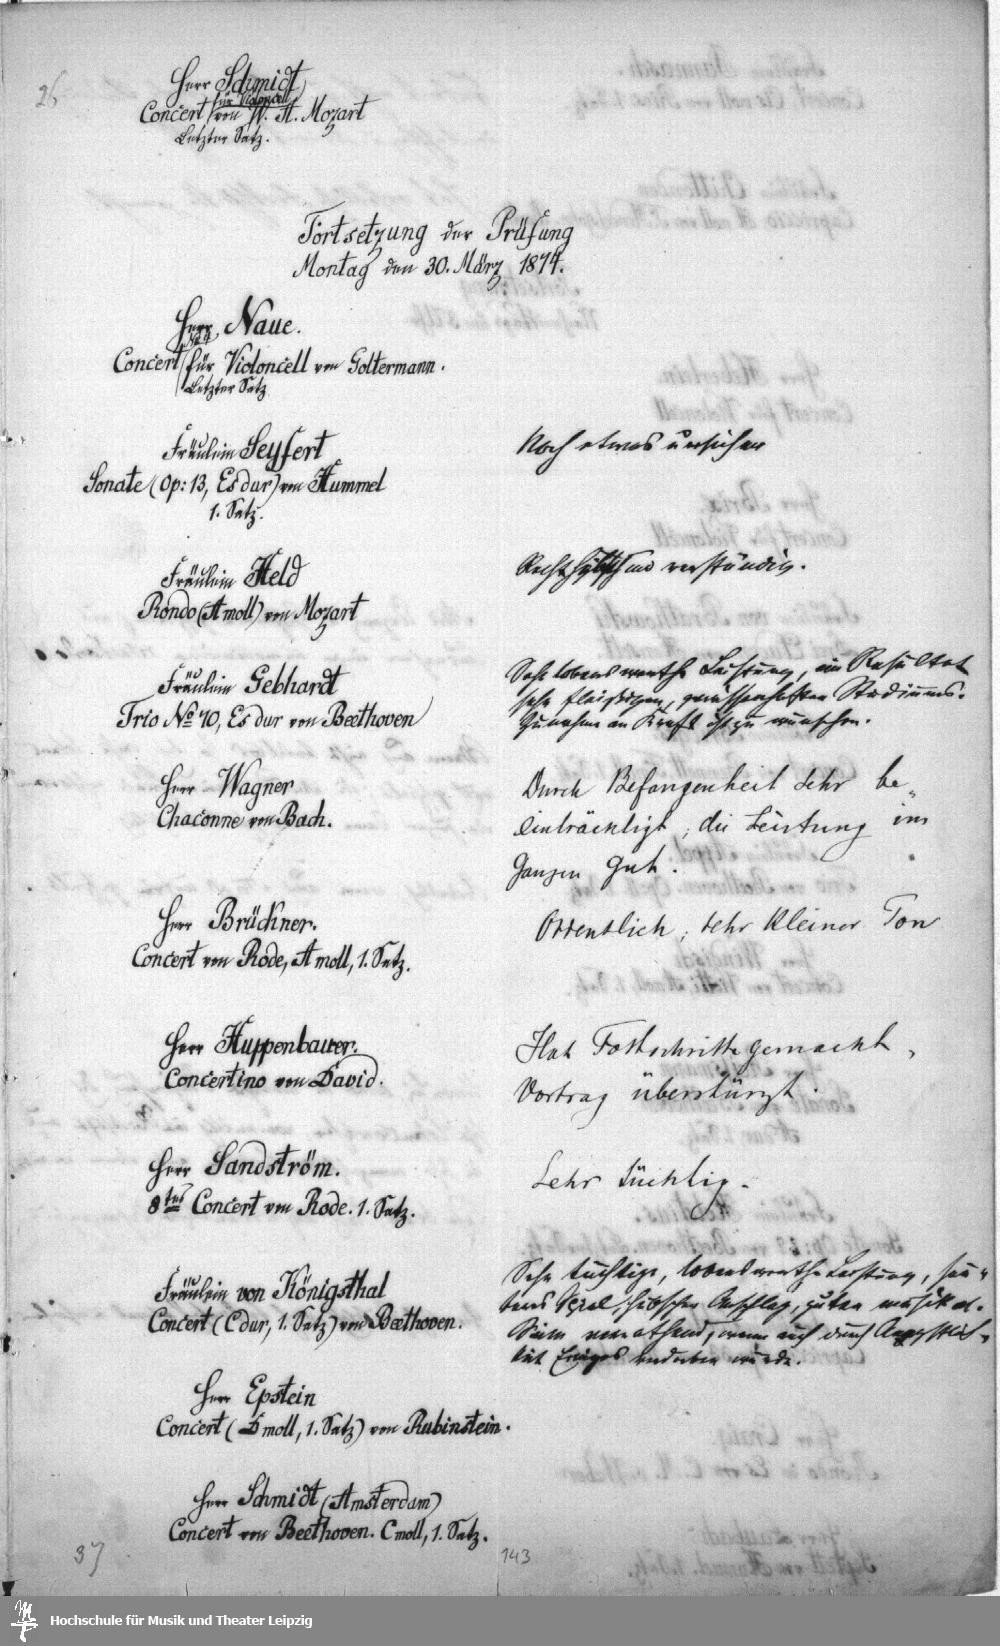 26
Herr Schmidt
für Violoncell
Concert von W. A. Mozart
Letzter Satz.
Fortsetzung der Prüfung
Montag den 30. März 1874.
Herr Naue.
Concert für Violoncell von Goltermann.
Letzter Satz
Fräulein Seyfert
Noch etwas unsicher
Sonate (Op: 13, Es dur) von Hummel
1. Satz.
Fräulein Held
Recht hübsch und verständig.
Rondo (A moll) von Mozart
Fräulein Gebhardt
Sehr lobenswerthe Leistung, ein Resultat
sehr fleißigen, gewissenhaften Studiums.
Trio No 10, Es dur von Beethoven
Zunahme an Kraft ist zu wünschen.
Herr Wagner
Durch Befangenheit sehr be-
Chaconne von Bach.
einträchtigt, die Leistung im
Ganzen gut.
Herr Brückner.
Ordentlich, sehr kleiner Ton
Concert von Rode, A moll, 1. Satz.
Herr Huppenbauer.
Hat Fortschritte gemacht,
Concertino von David.
Vortrag überstürzt.
Herr Sandström.
Sehr tüchtig.
8tes Concert von Rode. 1. Satz.
Fräulein von Königsthal
Sehr tüchtige, lobenswerthe Leistung,
Spiel, hübscher Anschlag, guten musikal.
Concert (C dur, 1. Satz) von Beethoven.
Sinn verrathend, wenn auch durch Aengstlich-
keit Einiges verdorben wurde.
Herr Epstein
Concert (D moll, 1. Satz) von Rubinstein.
Herr Schmidt (Amsterdam)
Concert von Beethoven. C moll, 1. Satz.
37
143
Hochschule für Musik und Theater Leipzig